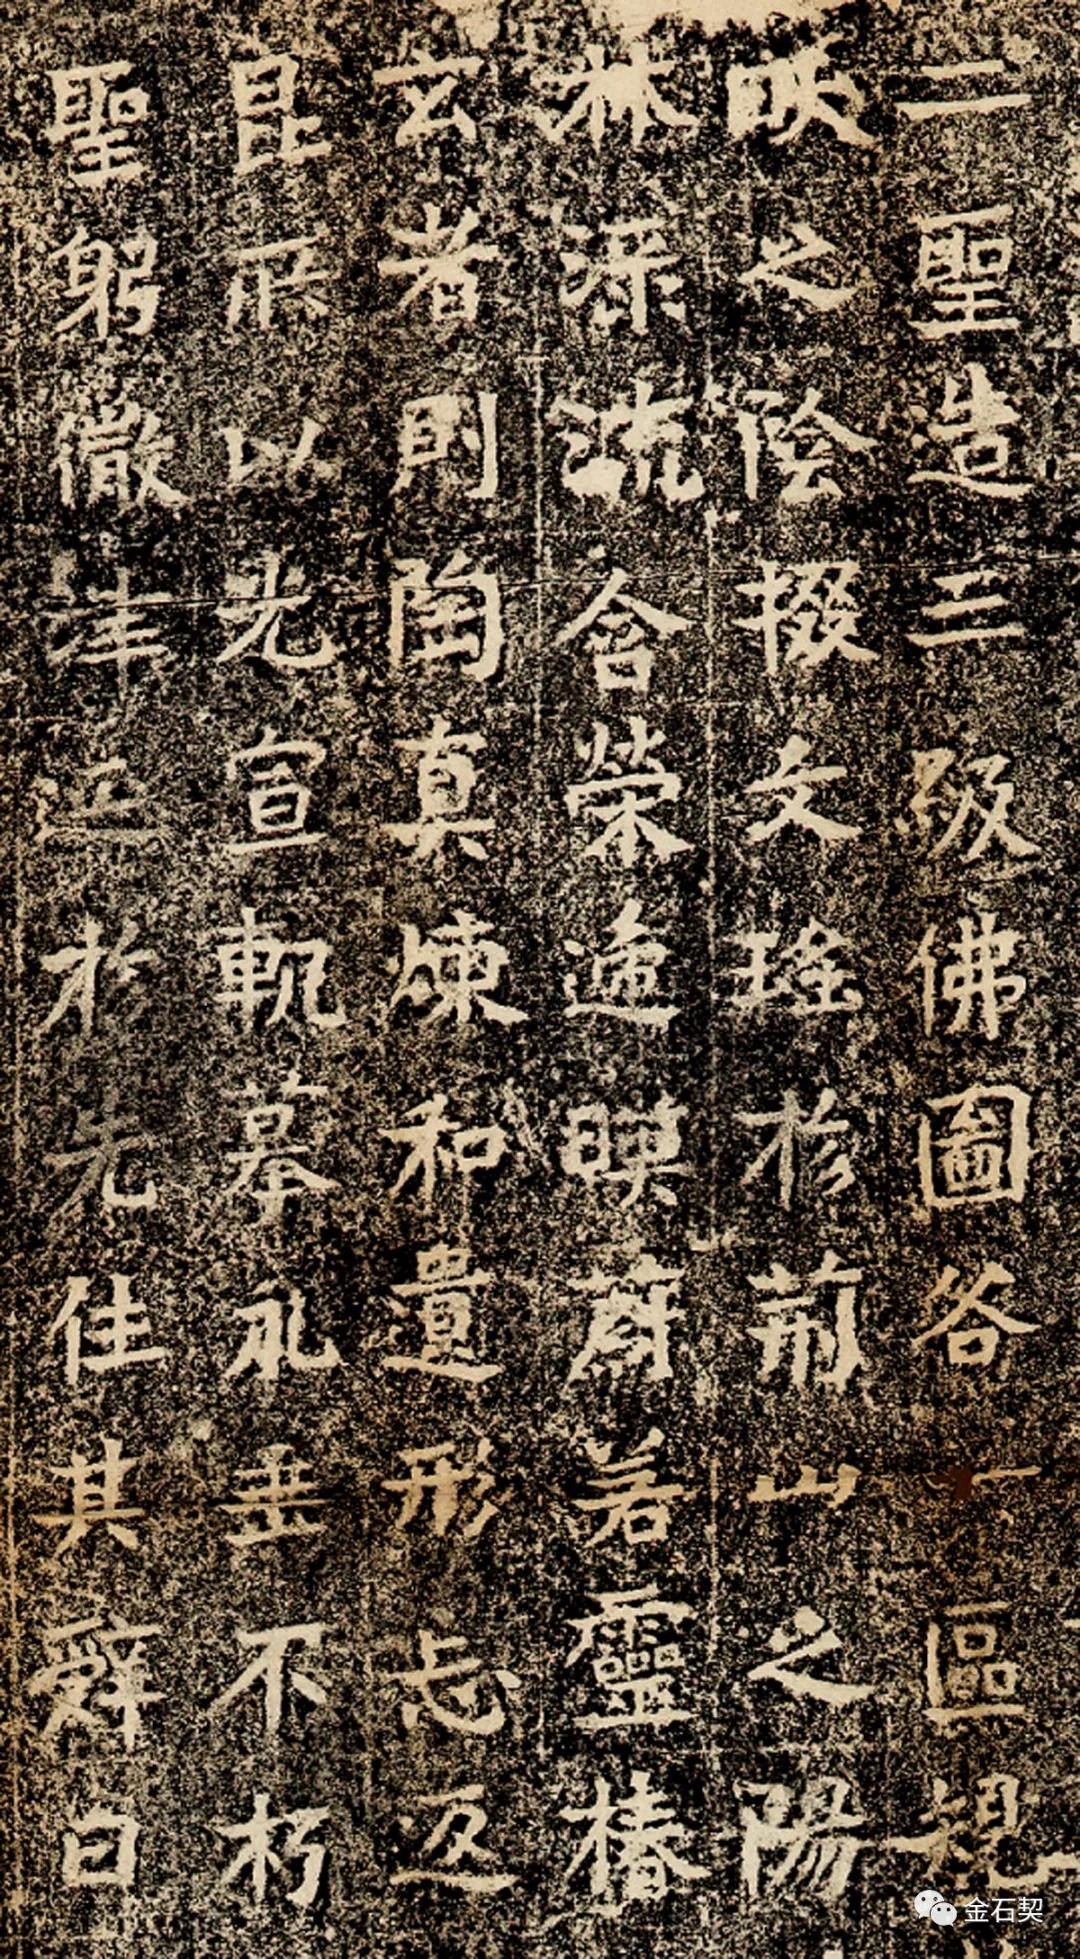 二聖造三級佛圖各一區規
畎之陰掇文瑤於荊山之陽
林添流含榮遞映蔚若靈椿
玄者則陶真煉和遺形忘返
昆所以光宣軌摹永垂不朽
聖躬徽津近於先住其辭曰
金石契